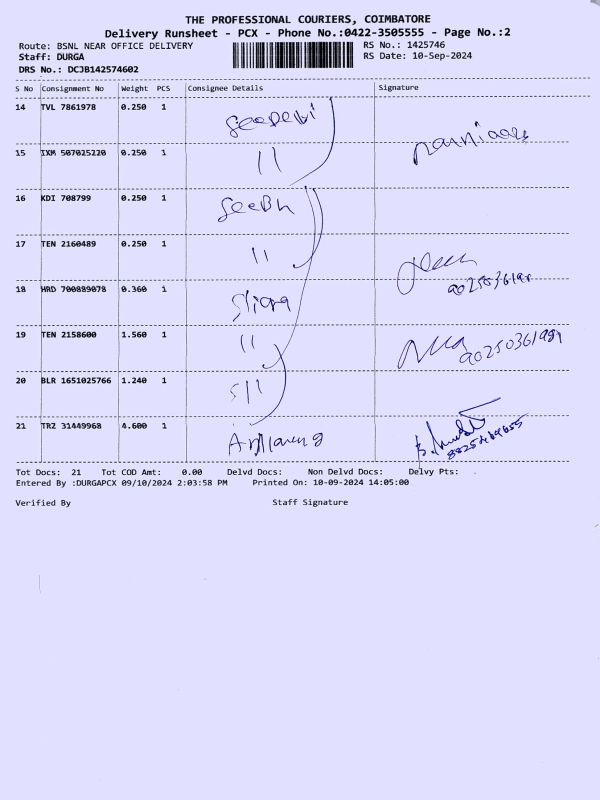 THE PROFESSIONAL COURIERS, COIMBATORE
Delivery Runsheet - PCX - Phone No.:0422-3505555 - Page No.:2
Route: BSNL NEAR OFFICE DELIVERY
RS No.: 1425746
Staff: DURGA
RS Date: 10-Sep-2024
DRS No.: DCJB142574602
S No Consignment No Weight PCS Consignee Details Signature
14 TVL 7861978 0.250 1
15 IXM 507025220 0.250 1 11
16 KDI 708799 0.250 1
17 TEN 2160489 0.250 1 11
18 HRD 700889078 0.360 1
19 TEN 2158600 1.560 1 11
20 BLR 1651025766 1.240 1
21 TRZ 31449968 4.600 1
Tot Docs: 21 Tot COD Amt: 0.00 Delvd Docs: Non Delvd Docs: Delvy Pts:
Entered By :DURGAPCX 09/10/2024 2:03:58 PM Printed On: 10-09-2024 14:05:00
Verified By Staff Signature